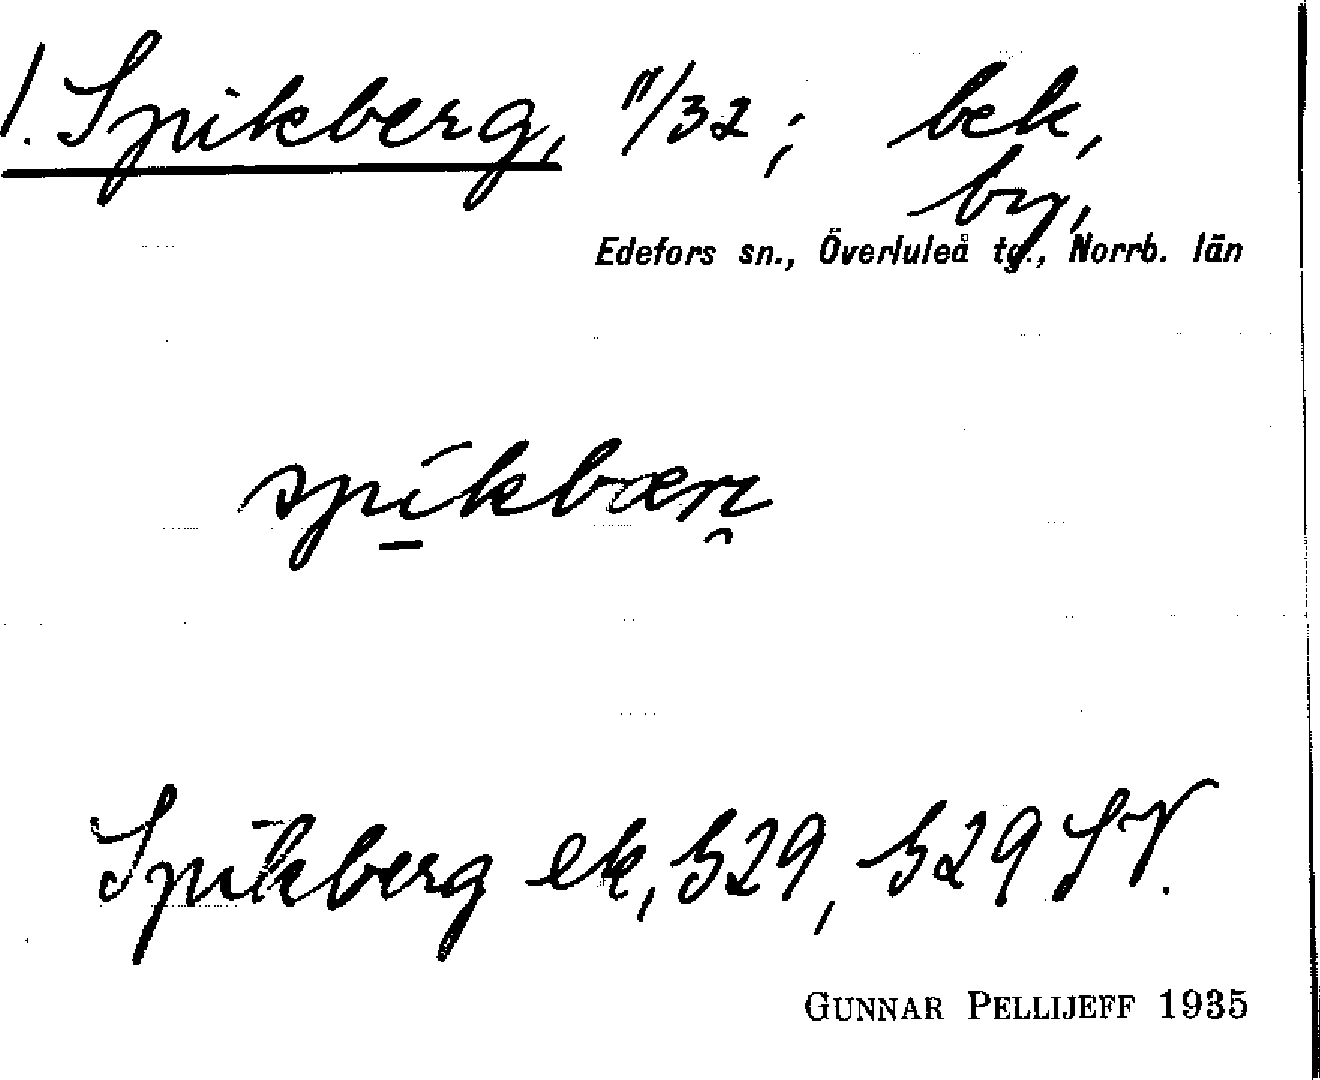 1. Spikberg, 11/32; bek,
by,
Edefors sn., Överluleå tg., Norrb. län
spikbærı
Spikberg ek, 529, 529 SV.
GUNNAR PELLIJEFF 1935